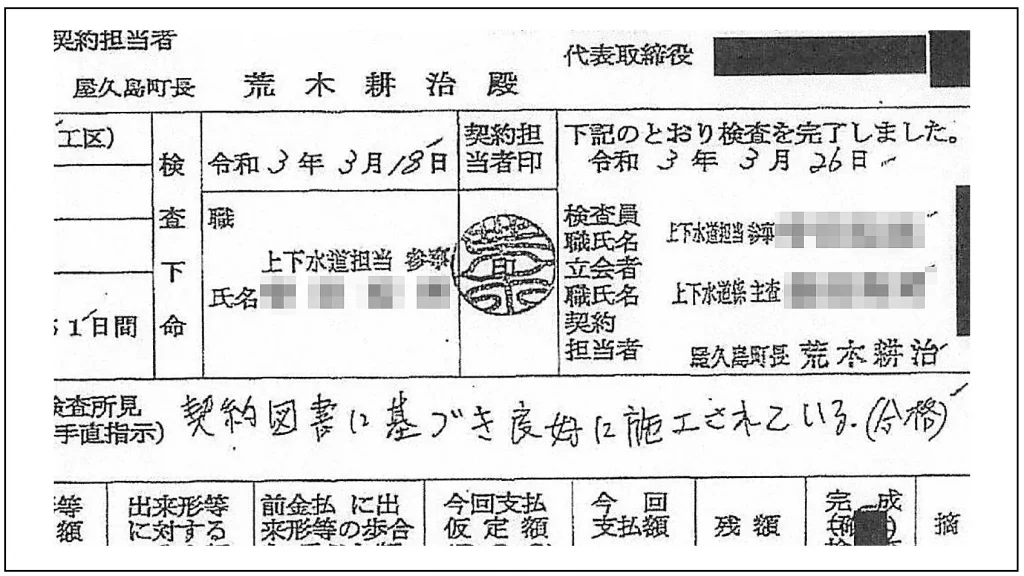 契約担当者
屋久島町長 荒木耕治殿
代表取締役
工区)
1日間
検査下命
令和3年3月18日
職
上下水道担当 参事
氏名
契約担
当者印
下記のとおり検査を完了しました。
令和3年3月26日
検査員
職氏名 上下水道担当 参事
立会者
職氏名 上下水道係 主査
契約
担当者 屋久島町長 荒木耕治
検査所見
手直指示) 契約図書に基づき良好に施工されている。(合格)
等
額
出来形等
に対する
前金払 に出
来形等の歩合
今回支払
仮定額
今回
支払額
残額
完成
摘